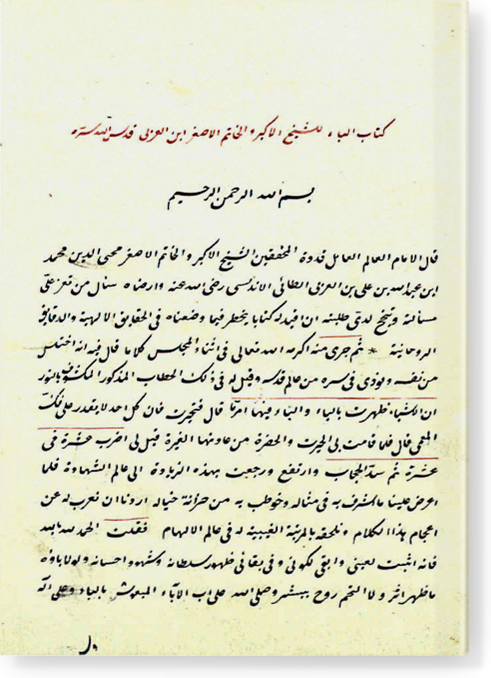 كتاب الباء للشيخ الاكبر والخاتم الاصغر ابن العربى قدس الله سره
بسم الله الرحمن الرحيم
قال الامام العالم العامل قدوة المحققين الشيخ الاكبر والخاتم الاصغر محيى الدين محمد
ابن عبد الله بن على بن العربى الطائى الاندلسى رضى الله عنه وارضاه سئال من تعز على
مسألته وتنجح لدى طلبته ان اقيد له كتابا يخطر فيما وضعناه فى الحقايق الالهية والدقايق
الروحانية ثم جرى منه اكرمه الله تعالى فى اثناء المجلس كلاما قال فيه انه اختلس
من نفسه ونودى فى سره من عالم قدسه وقيل له فى ذلك الخطاب المذكور المكسو بالنور
ان الاشياء ظهرت بالباء والباء فيها امرنا قال فتحيرت فان كل احد لا يقدر على فك
المعمى قال فلما قامت بى الحيرة والحضرة من عادتها الغيرة قيل لى اضرب عشرة فى
عشرة ثم سد الحجاب وارتفع ورجعت بهذه الزيادة الى عالم الشهادة فلما
اعرض علينا ما اشرف به فى مثاله وخوطب به من خزانة خياله اردنا ان نعرب له عن
اعجام هذا الكلام ونلحقه بالمرتبة الغيبية له فى عالم الالهام فقلت الحمد لله بالله
فانه اثبت لعينى وابقى لكونى وفى بقائى ظهور سلطانه وشهود احسانه ولولا باؤه
ما ظهر اثر ولا التحم روح ببشر وصلى الله على اب الآباء المبعوث بالباء وعلى آله